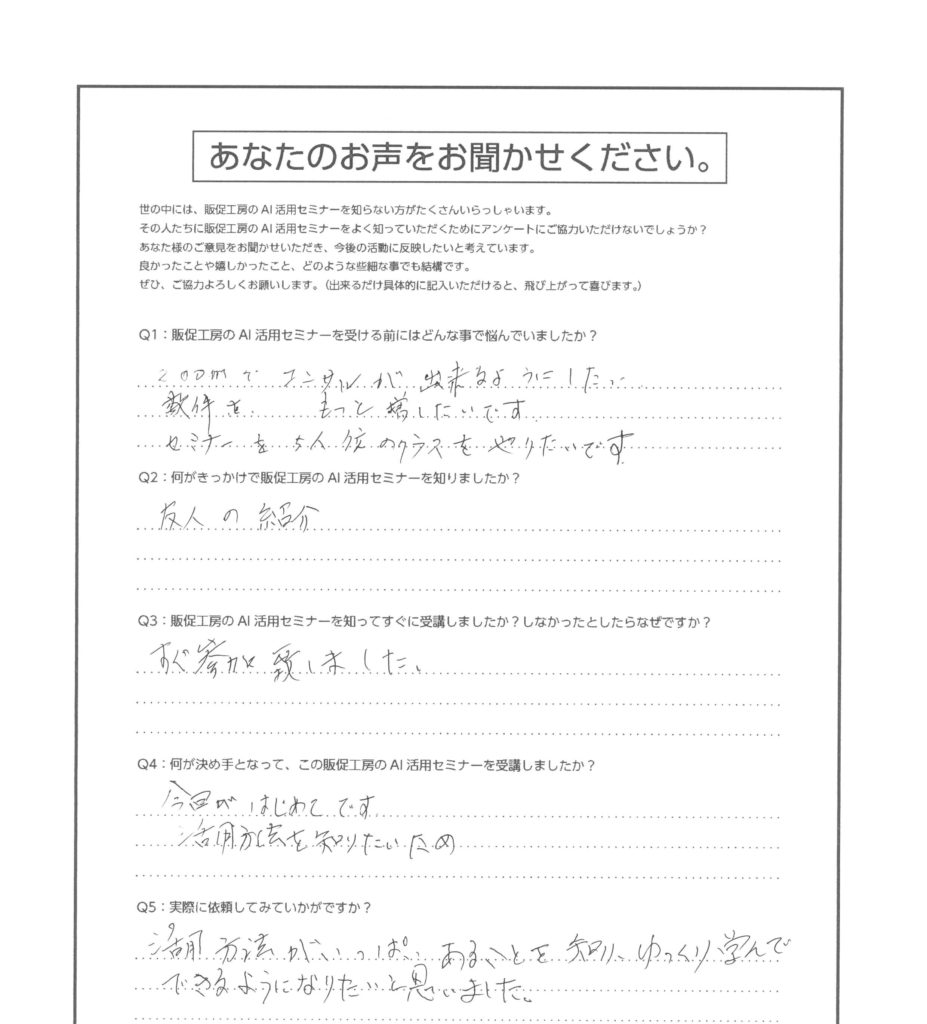 あなたのお声をお聞かせください。
世の中には、販促工房の AI 活用セミナーを知らない方がたくさんいらっしゃいます。
その人たちに販促工房の AI 活用セミナーをよく知っていただくためにアンケートにご協力いただけないでしょうか？
あなた様のご意見をお聞かせいただき、今後の活動に反映したいと考えています。
良かったことや嬉しかったこと、どのような些細な事でも結構です。
ぜひ、ご協力よろしくお願いします。（出来るだけ具体的に記入いただけると、飛び上がって喜びます。）
Q1：販促工房の AI 活用セミナーを受ける前にはどんな事で悩んでいましたか？
で コンサルが 出来るようにしたい
数件を もっと増したいです
セミナーを5人位のクラスをやりたいです
Q2：何がきっかけで販促工房の AI 活用セミナーを知りましたか？
友人の紹介
Q3：販促工房の AI 活用セミナーを知ってすぐに受講しましたか？しなかったとしたらなぜですか？
すぐ参加致しました。
Q4：何が決め手となって、この販促工房の AI 活用セミナーを受講しましたか？
今回がはじめてです
活用方法を知りたいため
Q5：実際に依頼してみていかがですか？
活用方法がいっぱいあることを知り、ゆっくり学んで
できるようになりたいと思いました。